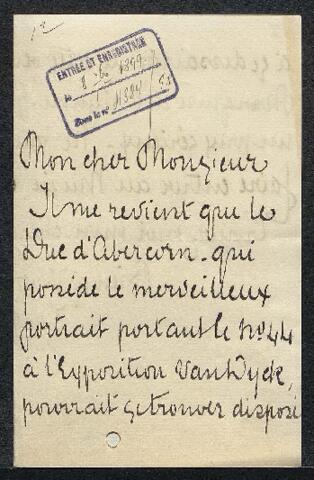 ENTRÉE ET ENREGISTRÉE
le 1899
Sous le no
Mon cher Monsieur
Il me revient que le
Duc d'Abercorn - qui
possède le merveilleux
portrait portant le no 44
à l'Exposition Van Dyck,
pourrait se trouver disposé